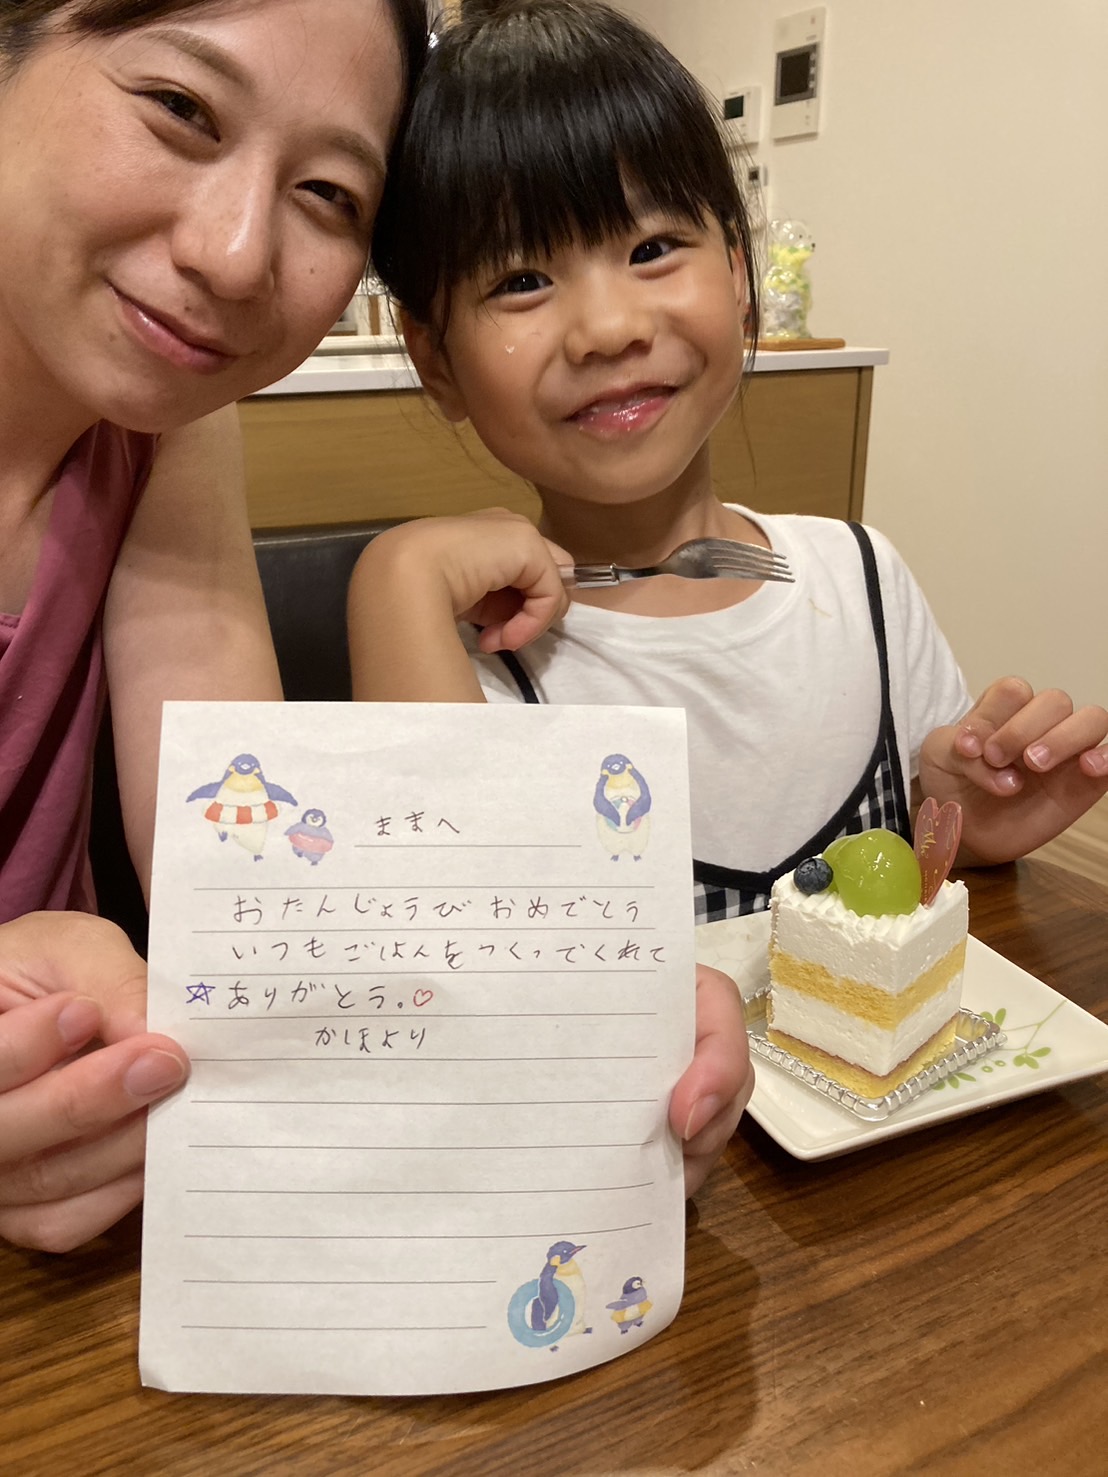 ままへ
おたんじょうび おめでとう
いつもごはんをつくってくれて
☆ありがとう。♡
かほより